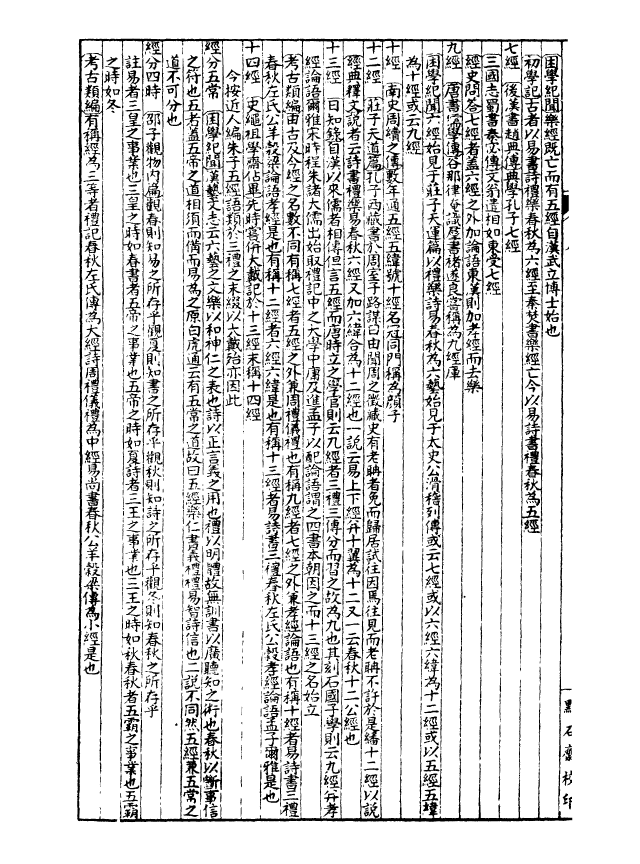 困學紀聞樂經既亡而有五經自漢武立博士始也
初學記古者以易書詩禮樂春秋為六經至秦焚書樂經亡今以易詩書禮春秋為五經
七經　後漢書趙典傳典學孔子七經
三國志蜀書秦宓傳文翁遣相如東受七經
經史問答七經者蓋六經之外加論語東漢則加孝經而去樂
九經　唐書儒學傳谷那律淹識群書褚遂良嘗稱為九經庫
困學紀聞六經始見于莊子天運篇以禮樂詩易春秋為六藝始見于太史公滑稽列傳或云七經或以六經六緯為十二經或以五經五緯
為十經或云九經
十經　南史周續之傳數年通五經五緯號十經名冠同門稱為顏子
十二經　莊子天道篇孔子西藏書於周室子路謀曰由聞周之徵藏史有老聃者免而歸居試往因焉往見而老聃不許於是繙十二經以說
經典釋文說者云詩書禮樂易春秋六經又加六緯合為十二經也一說云易上下經并十翼為十二又一云春秋十二公經也
十三經　日知錄自漢以來儒者相傳但言五經而唐時立之學官則云九經者三禮三傳分而習之故為九也其刻石國子學則云九經并孝
經論語爾雅宋時程朱諸大儒出始取禮記中之大學中庸及進孟子以配論語謂之四書本朝因之而十三經之名始立
考古類編由古及今經之名數不同有稱七經者五經之外兼周禮儀禮也有稱九經者七經之外兼孝經論語也有稱十經者易詩書三禮
春秋左氏公羊穀梁論語孝經是也有稱十二經者六經六緯是也有稱十三經者易詩書三禮春秋左氏公穀孝經論語孟子爾雅是也
十四經　史繩祖學齋佔畢先時嘗併大戴記於十三經末稱十四經
今按近人編朱子五經語類於三禮之末綴以大戴殆亦因此
經分五常　困學紀聞漢藝文志云六藝之文樂以和神仁之表也詩以正言義之用也禮以明體故無訓書以廣聽知之術也春秋以斷事信
之符也五者蓋五常之道相須而備而易為之原白虎通云有五常之道故曰五經樂仁書義禮禮易智詩信也二說不同然五經兼五常之
道不可分也
經分四時　邵子觀物內篇觀春則知易之所存乎觀夏則知書之所存乎觀秋則知詩之所存乎觀冬則知春秋之所存乎
註易者三皇之事業也三皇之時如春書者五帝之事業也五帝之時如夏詩者三王之事業也三王之時如秋春秋者五霸之事業也五霸
之時如冬
考古類編有稱經為三等者禮記春秋左氏傳為大經詩周禮儀禮為中經易尚書春秋公羊穀梁傳為小經是也
點石齋校印